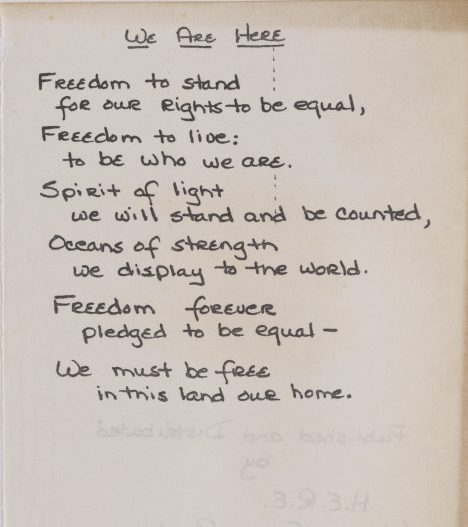 We Are Here
Freedom to stand
for our Rights to be equal,
Freedom to live:
to be who we are.
Spirit of light
we will stand and be counted,
Oceans of strength
we display to the world.
Freedom forever
pledged to be equal —
We must be free
in this land our home.
Published and Distributed
by
H.E.R.E.